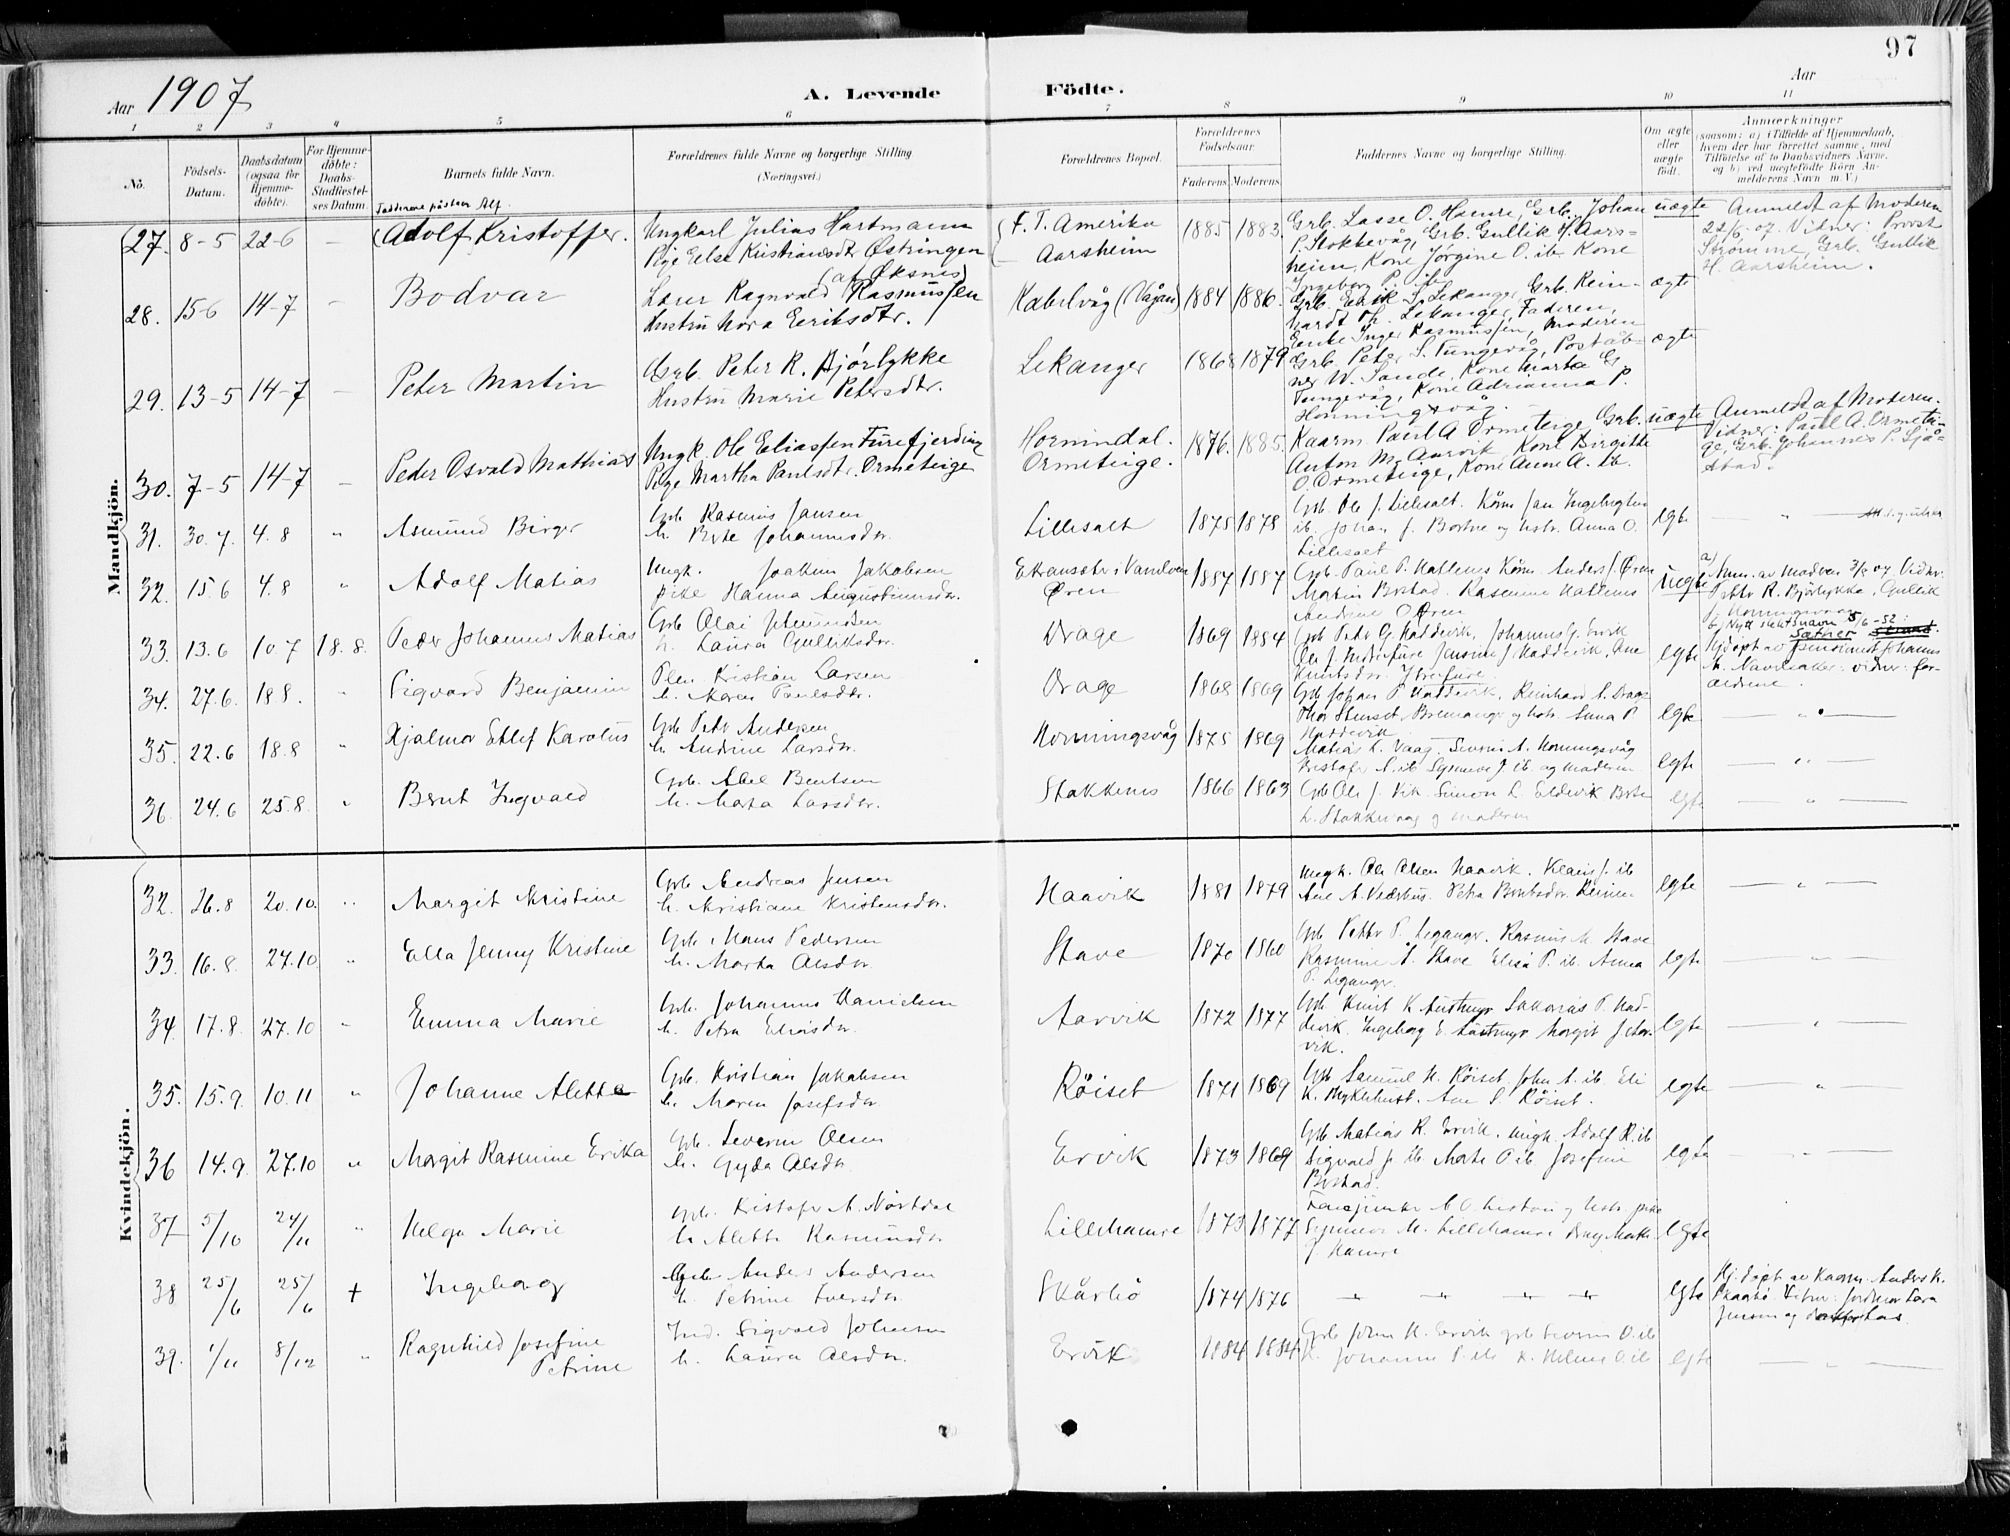 97
Aar 1907
A. Levende Födte.
Aar
1 2 3 4 5 6 7 8 9 10 11
No.
Födsels-Datum.
Daabsdatum (ogsaa for Hjemme-döbte).
For Hjemme-döbte: Daabs-Stadfæstel-ses Datum.
Barnets fulde Navn.
Forældrenes fulde Navne og borgerlige Stilling
(Næringsvei.)
Forældrenes Bopæl.
Forældrenes Födselsaar.
Faderens Moderens
Faddernes Navne og borgerlige Stilling.
Om ægte eller uægte födt.
Anmærkninger
(saasom: a) i Tilfælde af Hjemmedaab, hvem der har forrettet samme, med Tilföielse af to Daabsvidners Navne, og b) ved uægtefödte Börn An-melderens Navn m. V.)
Mandkjön.
27. 8-5 22-6 – Adolf Kristoffer.
Ungkarl Julius Hartmann
Pige Else Kristiansdtr Østringen
F. T. Amerika
Aarsheim
1885 1883.
Grb. Lasse O. Hamre, Grb. Johan
P. Stokkevåg, Grb. Gullik H. Aars-
heim, Kone Jørgine O. ib. Kone
Ingeborg P. ib.
uægte
Anmeldt af Moderen
22/6-07. Vidner: Provst
Strømme, Grb. Gullik
H. Aarsheim.
28. 15-6 14-7 – Bodvar
(af Øksnes)
Lærer Ragnvald Rasmussen
Hustru Nora Eeriksdtr.
Kabelvåg (Vågan) 1884 1886.
Grb. Erik S. Lekanger, Grb. Rein-
hardt Ok. Lekanger, Faderen,
Enke Inger Rasmussen, Moderen
ægte
29. 13-5 14-7 – Peter Martin
Grb. Peter R. Bjørlykke
Hustru Marie Petersdtr.
Lekanger 1868 1879
Grb. Peter S. Tungevåg, Poståb-
ner W. Sande, Kone Marta
Tungevåg, Kone Adrianna P.
Honningsvåg.
ægte
30. 7-5 14-7 – Peder Osvald Mathias
Ungk. Ole Eliassen Furefjerding
Pige Martha Paulsdtr. Ormeteige
Hornindal.
Ormeteige.
1876. 1885.
Kaarm. Paul A Ormeteige, Grb.
Anton M. Aarvik, Kone Birgitte
O. Ormeteige, Kone Anne A. ib.
uægte
Anmeldt af Moderen.
Vidner: Paul A. Ormetei-
ge, Grb. Johannes P. Sjå-
stad.
31. 30.7. 4.8 " Asmund Birger
Grb Rasmus Jansen
h. Berte Johannesdtr.
Lillesalt 1875 1878
Grb. Ole J. Lillesalt. Kårm Jan Ingebrigtsen
ib. Johan J. Borstve og hstr. Anna O.
Lillesalt
egte
32. 15.6 4.8 " Adolf Matias
Ungk. Joakim Jakobsen
pike Hanna Augustinusdtr.
Øren
1887 1887
Grb. Paul P. Hattenes Kårm. Anders J. Øren
Martin Borstad. Rasmine Hattenes
Andrine O Øren
uegte
a) Anm. av modren 3/8 07 Vidner.
Petter R. Bjørlykke, Gullik
J. Honningsvaag
b) Nytt slektsnavn 5/6-52:
Sætner
33. 13.6 10.7 18.8. Peder Johannes Matias
Grb Olai Amundsen
h. Laura Gulliksdtr.
Drage 1869 1884
Grb Peter G. Haddevik, Johannes G. Ervik
Ole J. Indrefure Jensine J. Haddevik, Ane
Knutsdtr. Ytrefure
egte
Hjdøpt av pensionist Johannes
h. Naveraker: vidner: for-
ældrene.
34. 27.6. 18 8. " Sigvard Benjamin
Kristian Larsen
h. Maren Paulsdtr.
Drage 1868 1869
Grb Johan P Haddevik, Reinhard A. Drage
Bremanger og hstr. Anna P
Haddevik
egte
35. 22.6 18.8 " Hjalmar Edlef Karolus
Grb Peter Andersen
h. Andrine Larsdtr.
Honningsvåg 1875 1869
Matias L. Vaag. Severin A. Honningsvåg
Kristofer A. ib Synneve J. ib. og moderen
egte
36. 24.6 25.8. " Bernt Ingvald
Grb. Abel Bentsen
h. Marta Larsdtr.
Stokkenes 1866 1863
Grb Ole J. Vik. Simon L. Eldevik Berte
L. Stokkevaag og moderen
egte
Kvindekjön.
32. 26.8 20.10. " Margit Kristine
Grb Andreas Jensen
h. Kristiane Kristensdtr.
Haavik 1881 1879
Ungk. Ole Olsen Haavik. Klaus J. ib
Ane A. Vederhus. Petra Berntsdtr. Reime
egte
33. 16.8. 27.10 " Ella Jenny Kristine
Grb. Mons Pedersen
h. Marta Olsdtr.
Stave 1870 1860
Grb Petter P. Leganger. Rasmus M. Stave
Rasmine A. Stave Elisa P. ib. Anna
P. Leganger.
egte
34. 17.8. 27.10 " Emma Marie
Grb. Johannes Danielsen
h. Petra Eliasdtr.
Aarvik 1872 1877
Grb Knut K. Austmyr Sakarias P. Had-
devik. Ingeborg E. Austmyr Margit J. Aar-
vik.
egte
35. 15.9. 10.11 " Johanne Alette
Grb. Kristian Jakobsen
h. Maren Josefsdtr
Røiset 1871 1869
Grb Samuel N. Røiset. John A. ib. Eli
K. Myklebust. Ane S. Røiset.
egte
36 14.9. 27.10 " Margit Rasmine Erika
Grb. Severin Olsen
h. Gyda Olsdtr.
Ervik 1873 1869
Grb Matias R. Ervik. Ungk. Adolf R. ib
Sigvald J. ib Marte O ib Josefine
Borstad.
egte
37 5/10 24/11 " Helga Marie
Grb. Kristofer A. Nørtdal
h Alette Rasmusdtr
Lillehamre 1873 1877
Synneve M. Lillehamre Marte
J. Hamre
egte
38 25/6 25/6 + Ingeborg
Grb. Anders Andersen
h. Petrine Iversdtr.
Skårbø 1874 1876
" " " "
egte
Hj.døpt av Kaarm. Anders K.
Skaarbø Vidner: Jordmor Lara
Jensen og
39. 1/11 8/12 " Ragnhild Josefine
Petrine
Ind. Sigvald Johansen
h. Laura Olsdtr.
Ervik 1884 1884
Grb John K. Ervik grb Severin O. ib
K. Johanne P. ib K. Helene O. ib
egte